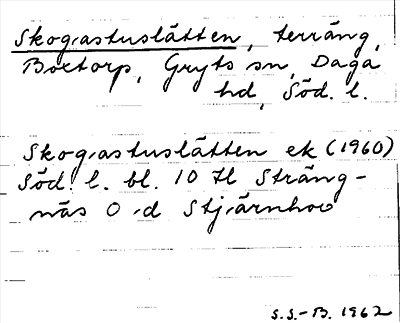 Skogastuslätten, terräng,
Boxtorp, Gryts sn, Daga
hd, Söd. l.
Skogastuslätten ek (1960)
Söd. l. bl. 10 Hl Sträng-
näs O d Stjärnhov
S.S.-B. 1962